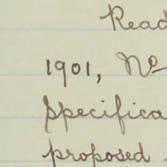 Read
1901, No
specifica
proposed